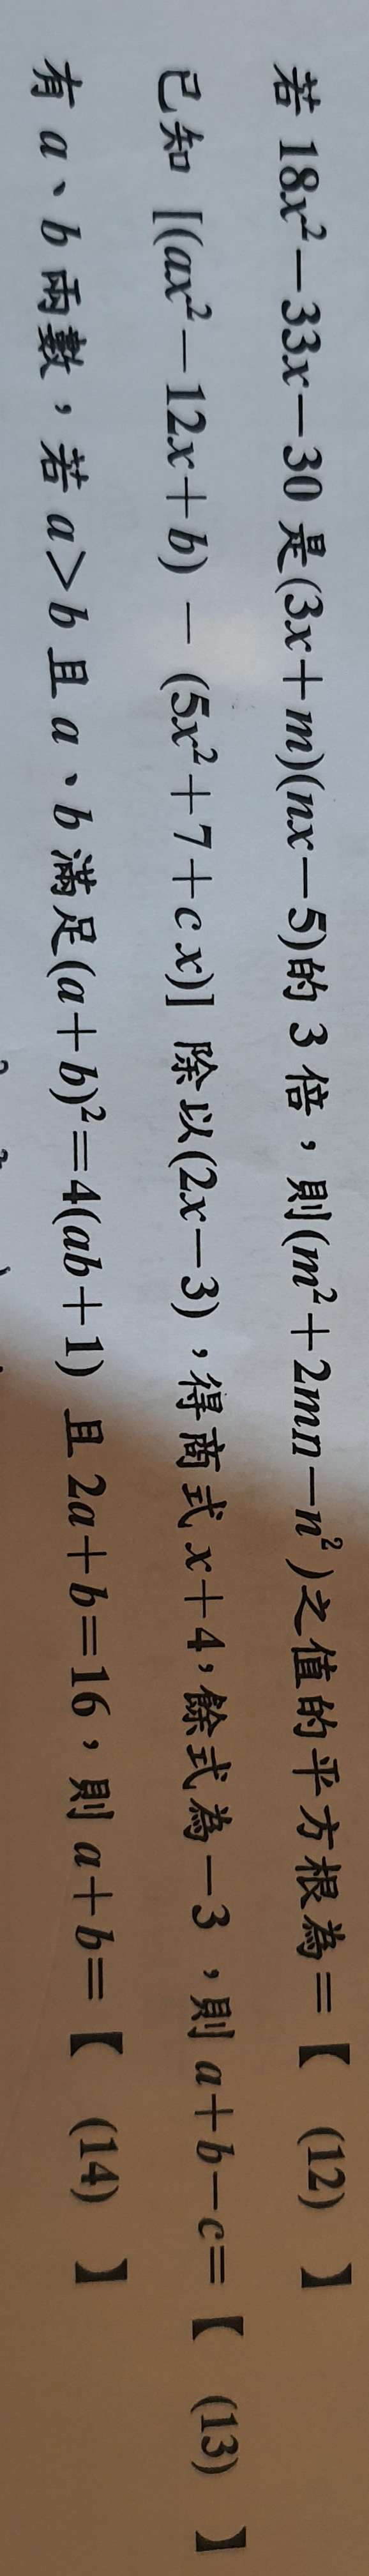 若 18x²－33x－30 是(3x＋m)(nx－5)的 3 倍，則(m²＋2mn－n²)之值的平方根為＝【 (12) 】
已知 [(ax²－12x＋b) － (5x²＋7＋c x)] 除以(2x－3)，得商式 x＋4，餘式為－3，則 a＋b－c＝【 (13) 】
有 a、b 兩數，若 a＞b 且 a、b 滿足(a＋b)²＝4(ab＋1) 且 2a＋b＝16，則 a＋b＝【 (14) 】